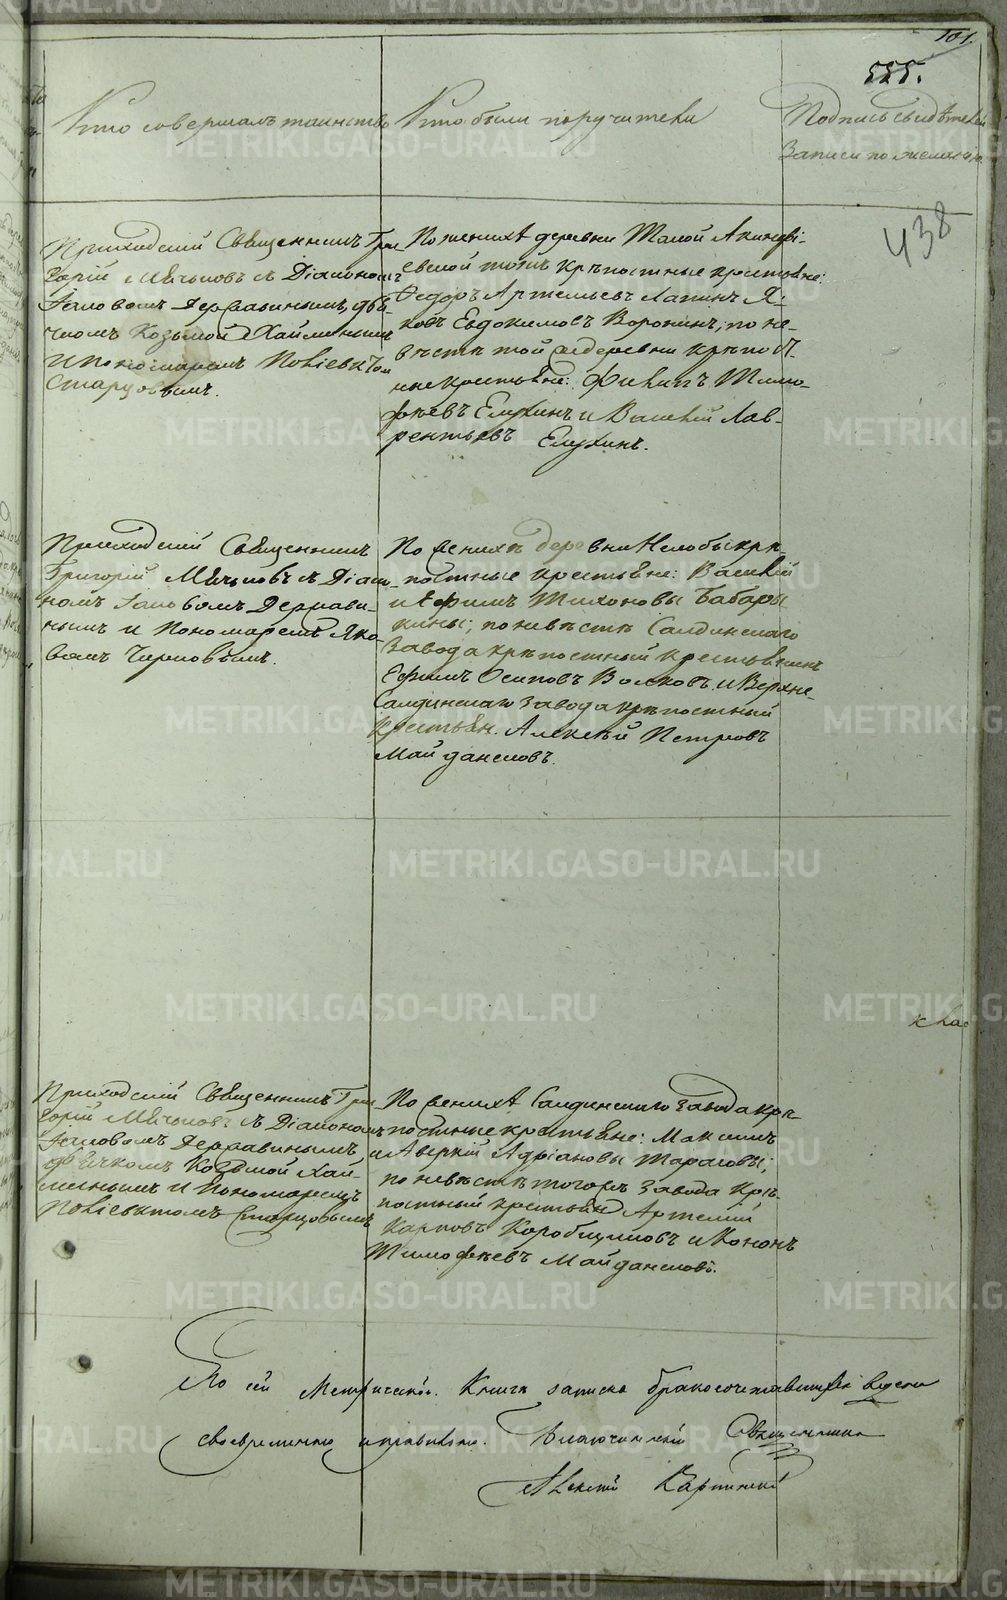 101.
555.
438
Кто совершалъ таинство
Кто были поручители
Подпись свидѣтелей
записи по желанію
Приходскій Священникъ Гри-
горій Мѣчьковъ съ Діакономъ
Іаковомъ Державинымъ, дья-
чкомъ Козьмой Хайминымъ
и Пономаремъ
Старцовымъ.
По женихѣ деревни Малой Акинфі-
евской тоже крѣпостные крестьяне:
Ѳедоръ Артемьевъ Лапинъ Я-
ковъ Евдокимовъ Воронинъ; по не-
вѣстѣ той же деревни крѣпост-
ные крестьяне: Филипъ Тимо-
фѣевъ Елухинъ и Василій Лав-
рентьевъ Елухинъ.
Приходскій Священникъ
Григорій Мѣчьковъ съ Діако-
номъ Іаковомъ Держави-
нымъ и Пономаремъ Яко-
вомъ Черновымъ.
По женихѣ деревни Нелобы крѣ-
постные крестьяне: Василій
и Ефимъ Тихоновы Бабары-
кины; по невѣстѣ Салдинскаго
завода крѣпостный крестьянинъ
Ефимъ Осиповъ Волковъ, и Верхне-
Салдинскаго завода крѣпостный
крестьян. Алексѣй Петровъ
Майдановъ.
Приходскій Священникъ Гри-
горій Мѣчьковъ съ Діакономъ
Іаковомъ Державинымъ
дьячкомъ Козьмой Хай-
минымъ и Пономаремъ
Старцовымъ
По женихѣ Салдинскаго завода крѣ-
постные крестьяне: Максимъ
и Аверкій Адріановы Тарасовы;
по невѣстѣ тогожъ завода крѣ-
постный крестьян. Артемій
Карповъ Коробщиковъ и Кононъ
Тимофѣевъ Майдановъ.
По сей Метрической Книгѣ записка бракосочетавшихся ведена
своевременно и правильно. Благочинный Священникъ
Алексій Карпинскій
METRIKI.GASO-URAL.RU